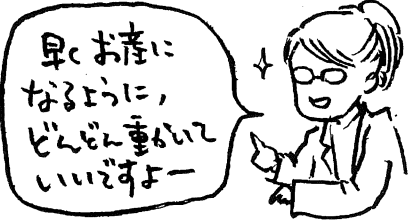 早くお産に
なるように,
どんどん動かいて
いいですよー